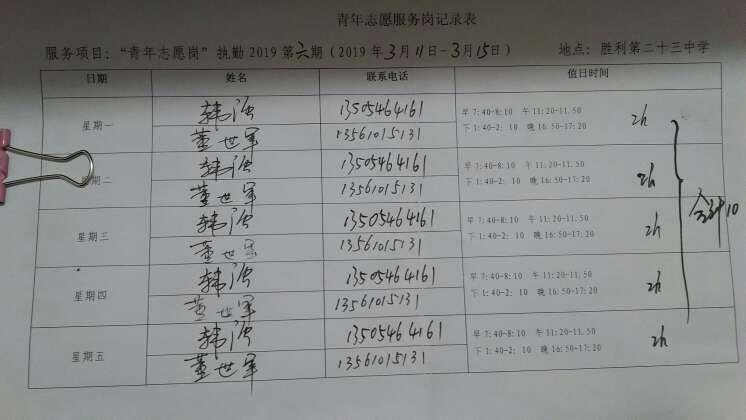 青年志愿服务岗记录表
服务项目：“青年志愿岗”执勤 2019 第六期（2019 年3月11日-3月15日） 地点：胜利第二十三中学
日期 姓名 联系电话 值日时间
星期一 韩强 13505464161 早 7:40-8:10 午 11:20-11.50 2h
董世军 13561015131 下 1:40-2：10 晚 16:50-17:20
星期二 韩强 13505464161 早 7:40-8:10 午 11:20-11.50 2h
董世军 13561015131 下 1:40-2：10 晚 16:50-17:20
星期三 韩强 13505464161 早 7:40-8:10 午 11:20-11.50 2h 合计10
董世军 13561015131 下 1:40-2：10 晚 16:50-17:20
星期四 韩强 13505464161 早 7:40-8:10 午 11:20-11.50 2h
董世军 13561015131 下 1:40-2：10 晚 16:50-17:20
星期五 韩强 13505464161 早 7:40-8:10 午 11:20-11.50 2h
董世军 13561015131 下 1:40-2：10 晚 16:50-17:20